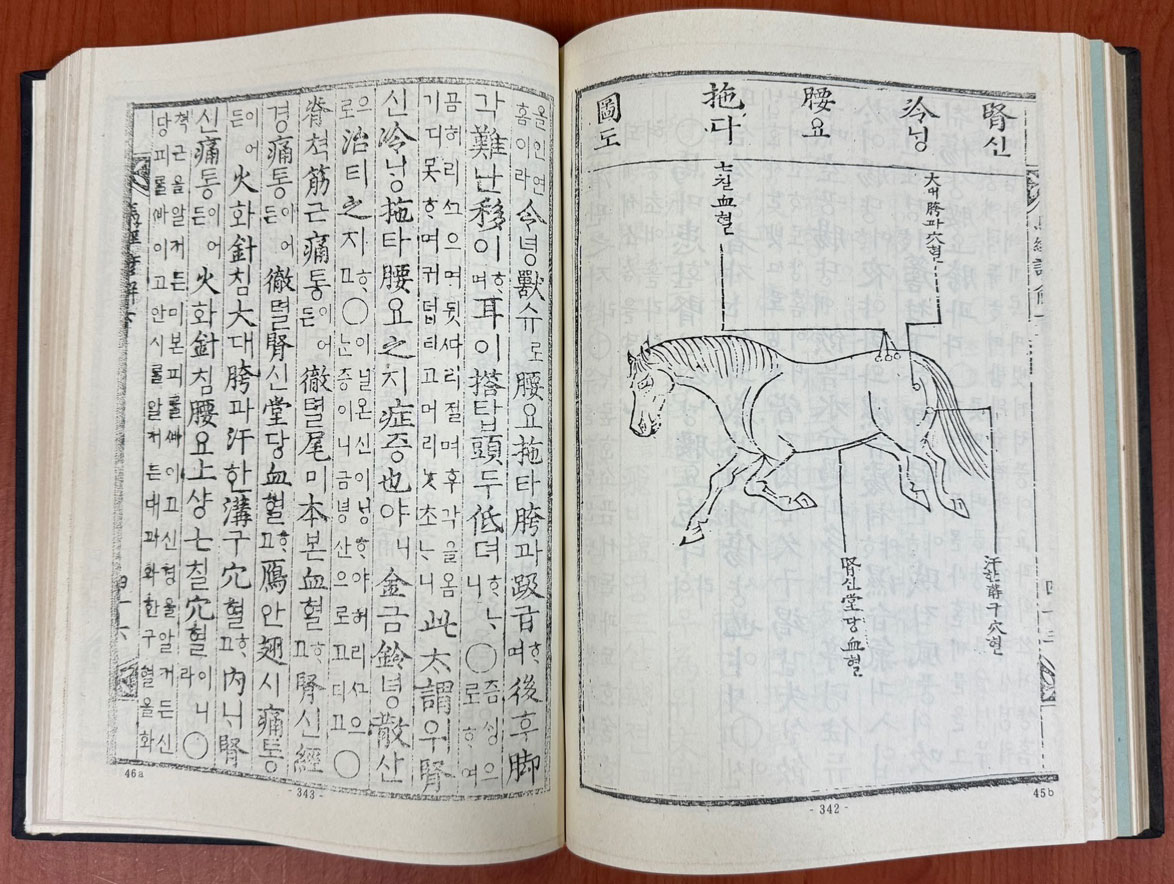 腎신
冷닝
腰요
拖다
圖도
大대胯과穴혈
七칠血혈
腎신堂당血혈
汗한溝구穴혈
45b
- 342 -
올인연
홈이라
令녕獸슈로腰요拖타胯과趿급ᄒᆞ며後후脚
각難난移이ᄒᆞ며耳이搭탑頭두低뎌ᄒᆞᄂᆞ니◯즘ᄉᆡᆼ으로ᄒᆞ여
곰허리ᄭᅳ으며뒷ᄃᆞ리절며후각을옴
기디못ᄒᆞ며귀덥티고머리ᄂᆞ초ᄂᆞ니
此ᄎᆞ謂위腎
신冷닝拖타腰요之지症증也야ㅣ니金금鈴녕散산
으로治티之지ᄒᆞ고◯이닐온신이닝ᄒᆞ야허리ᄭᅳ으
ᄂᆞᆫ증이니금녕산으로고티고◯
脊쳑筋근痛통이어든徹텰尾미本본血혈ᄒᆞ고腎신經
경痛통이어든徹텰腎신堂당血혈ᄒᆞ고鴈안翅시痛통
이어든火화針침大대胯과汗한溝구穴혈ᄒᆞ고內ᄂᆡ腎
신痛통이어든火화針침腰요上샹七칠穴혈이니라◯
쳑근을알거든미본피ᄅᆞᆯᄲᅡ이고신경을알거든신
당피ᄅᆞᆯᄲᅡ이고안시ᄅᆞᆯ알거든대과화한구혈을화
46a
- 343 -